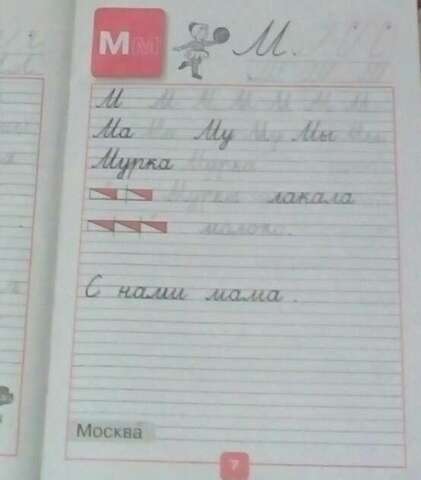 Мм М.
М М М М М М М
Ма Ма Му Му Мы Мы
Мурка Мурка
Мурка лакала
молоко.
С нами мама.
Москва
7